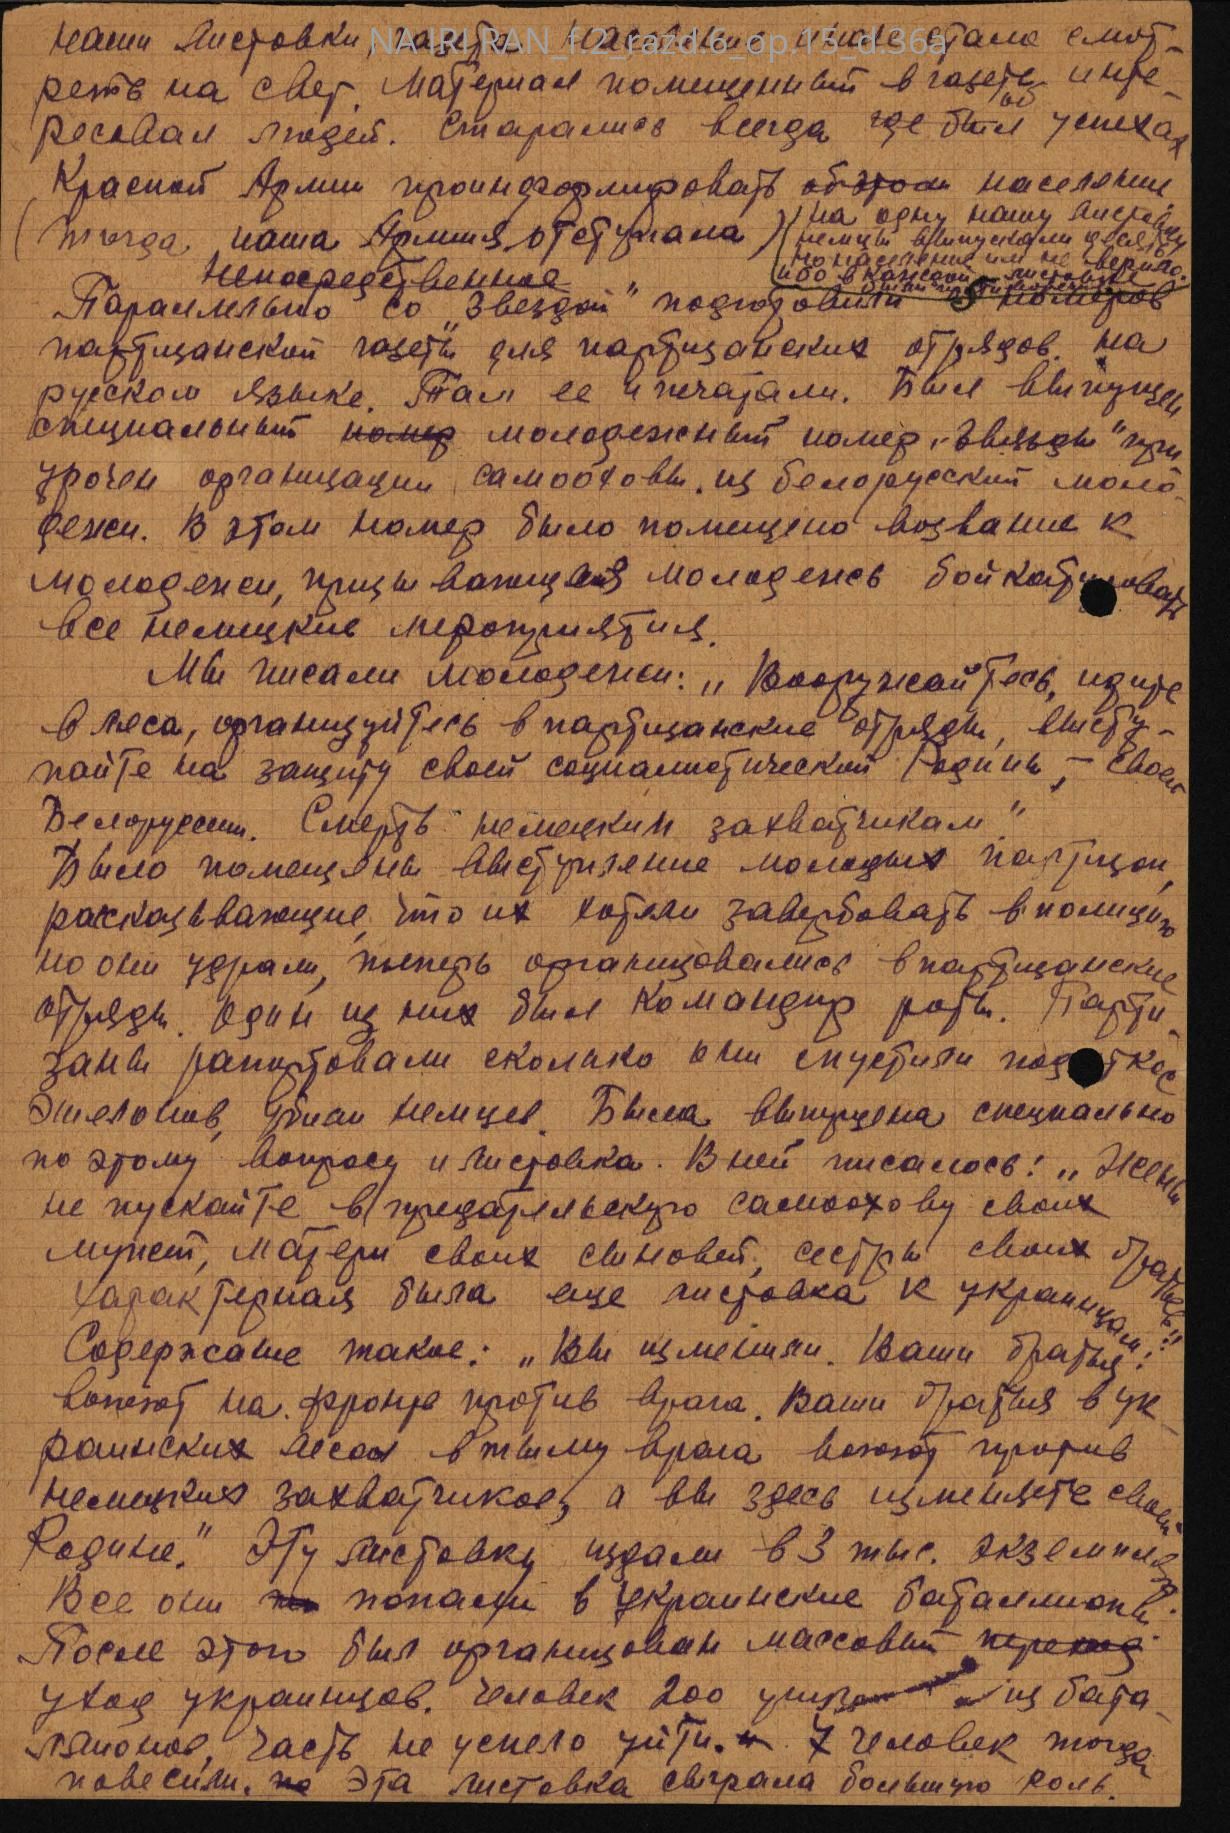 NA IRI RAN_f.2_razd.6_op.15_d.36a
наши листовки, газеты. Население иначе стало смот-
реть на свет. Материал помещенный в газеты инте-
ресовал людей. Старались всегда где был об успехах
Красной Армии проинформировать об этом население
(тогда наша Армия отступала)
(на одну нашу листовку
немцы выпускали десять
но население им не верило.
ибо в каждой листовке
были
Непосредственное
Параллельно со Звездой" подготовили 5 номеров
партизанской газеты для партизанских отрядов на
русском языке. Там ее и печатали. Был выпущен
специальный номер молодежный номер „Звезды" при
урочен организации самооховы из белорусской моло-
дежи. В этом номер было помещено возвание к
молодежи, призывающая молодежь бойкотировать
все немецкие мероприятия.
Мы писали молодежи: „Вооружайтесь, идите
в леса, организуйтесь в партизанские отряды, высту-
пайте на защиту своей социалистической Родины, – своей
Белоруссии. Смерть немецким захватчикам".
Было помещены выступление молодых партизан,
рассказывающие, что их хотели завербовать в полицию
но они удрали, теперь организовались в партизанские
отряды. Один из них был командир роты. Парти-
заны рапортовали сколько они спустили под откос
эшелонов, убили немцев. Была выпущена специально
по этому вопросу и листовка. В ней писалось: „Жены
не пускайте в предательскую самоохову своих
мужей, матери своих сыновей, сестры своих братьев!"
Характерная была еще листовка к украинцам.
Содержание такое: „Вы изменили. Ваши братья
воюют на фронте против врага. Ваши братья в ук-
раинских лесах в тылу врага воюют против
немецких захватчиков, а вы здесь изменяете своей
Родине." Эту листовку издали в 3 тыс. экземпляр.
Все они по попали в украинские батальлионы.
После этого был организован массовый переход
уход украинцов. Человек 200 ушло из бата-
лионов, часть не успело уйти. и 7 человек тогда
повесили. но Эта листовка сыграла большую роль.